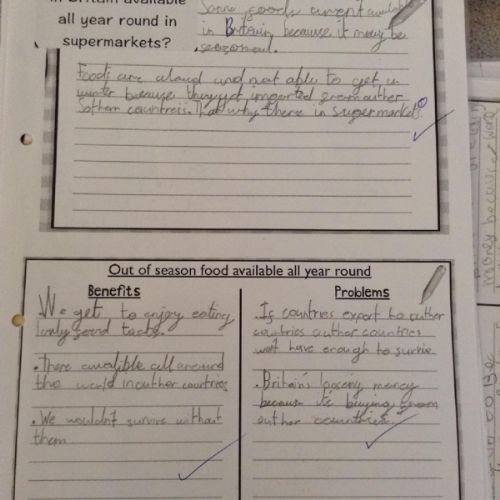 in Britain available
all year round in
supermarkets?
Some foods arent available
in Britain because it may be
seasonal.
Foods are aloud and not able to get in
winter because they get imported from auther
Sothern countries. That why there in supermarkets
Out of season food available all year round
Benefits
We get to enjoy eating
lovly food
.There avalible all around
the world in auther countries
.We wouldn't survive without
them
Problems
.If countries export to auther
countries auther countries
wont have enough to survie
.Britain's loosing money
because it's buying from
auther countries.
money because